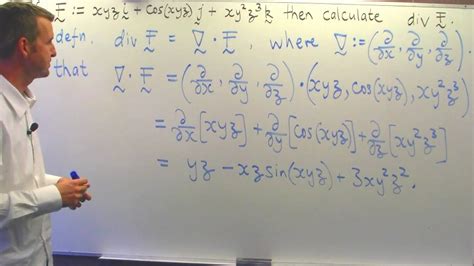 F := xyz i + cos(xyz) j + xy²z³ k then calculate div F.
defn. div F = ∇ · F, where ∇ := (∂/∂x, ∂/∂y, ∂/∂z)
that ∇ · F = (∂/∂x, ∂/∂y, ∂/∂z) · (xyz, cos(xyz), xy²z³)
= ∂/∂x [xyz] + ∂/∂y [cos(xyz)] + ∂/∂z [xy²z³]
= yz − xz sin(xyz) + 3xy²z².